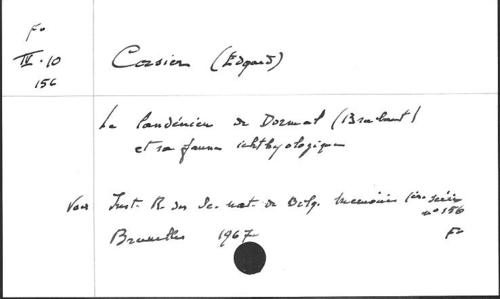 Fo
IV.10
156
Casier (Edgard)
Le Landénien de Dormal (Brabant)
et sa faune ichthyologique
Voir Inst. R. des Sc. nat. de Belg. Mémoires 1re série
n° 156
Bruxelles 1967 Fo